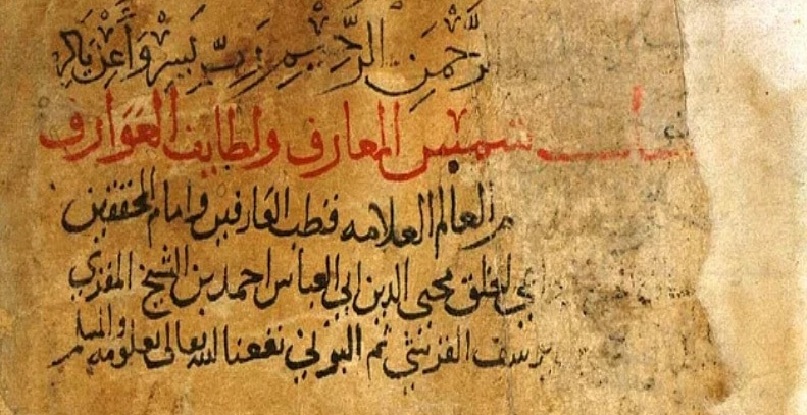 الرَّحْمَنِ الرَّحِيمِ رَبِّ يَسِّر وَأَعِن يَا كَرِيم
كتاب شمس المعارف ولطايف العَوَارف
العالم العلامه قطب العَارفين وامام المحققين
محيى الدين ابى العباس احمد بن الشيخ المقرى
يوسف القرشى ثم البونى نفعنا الله تعالى بعلومه والمسلمين